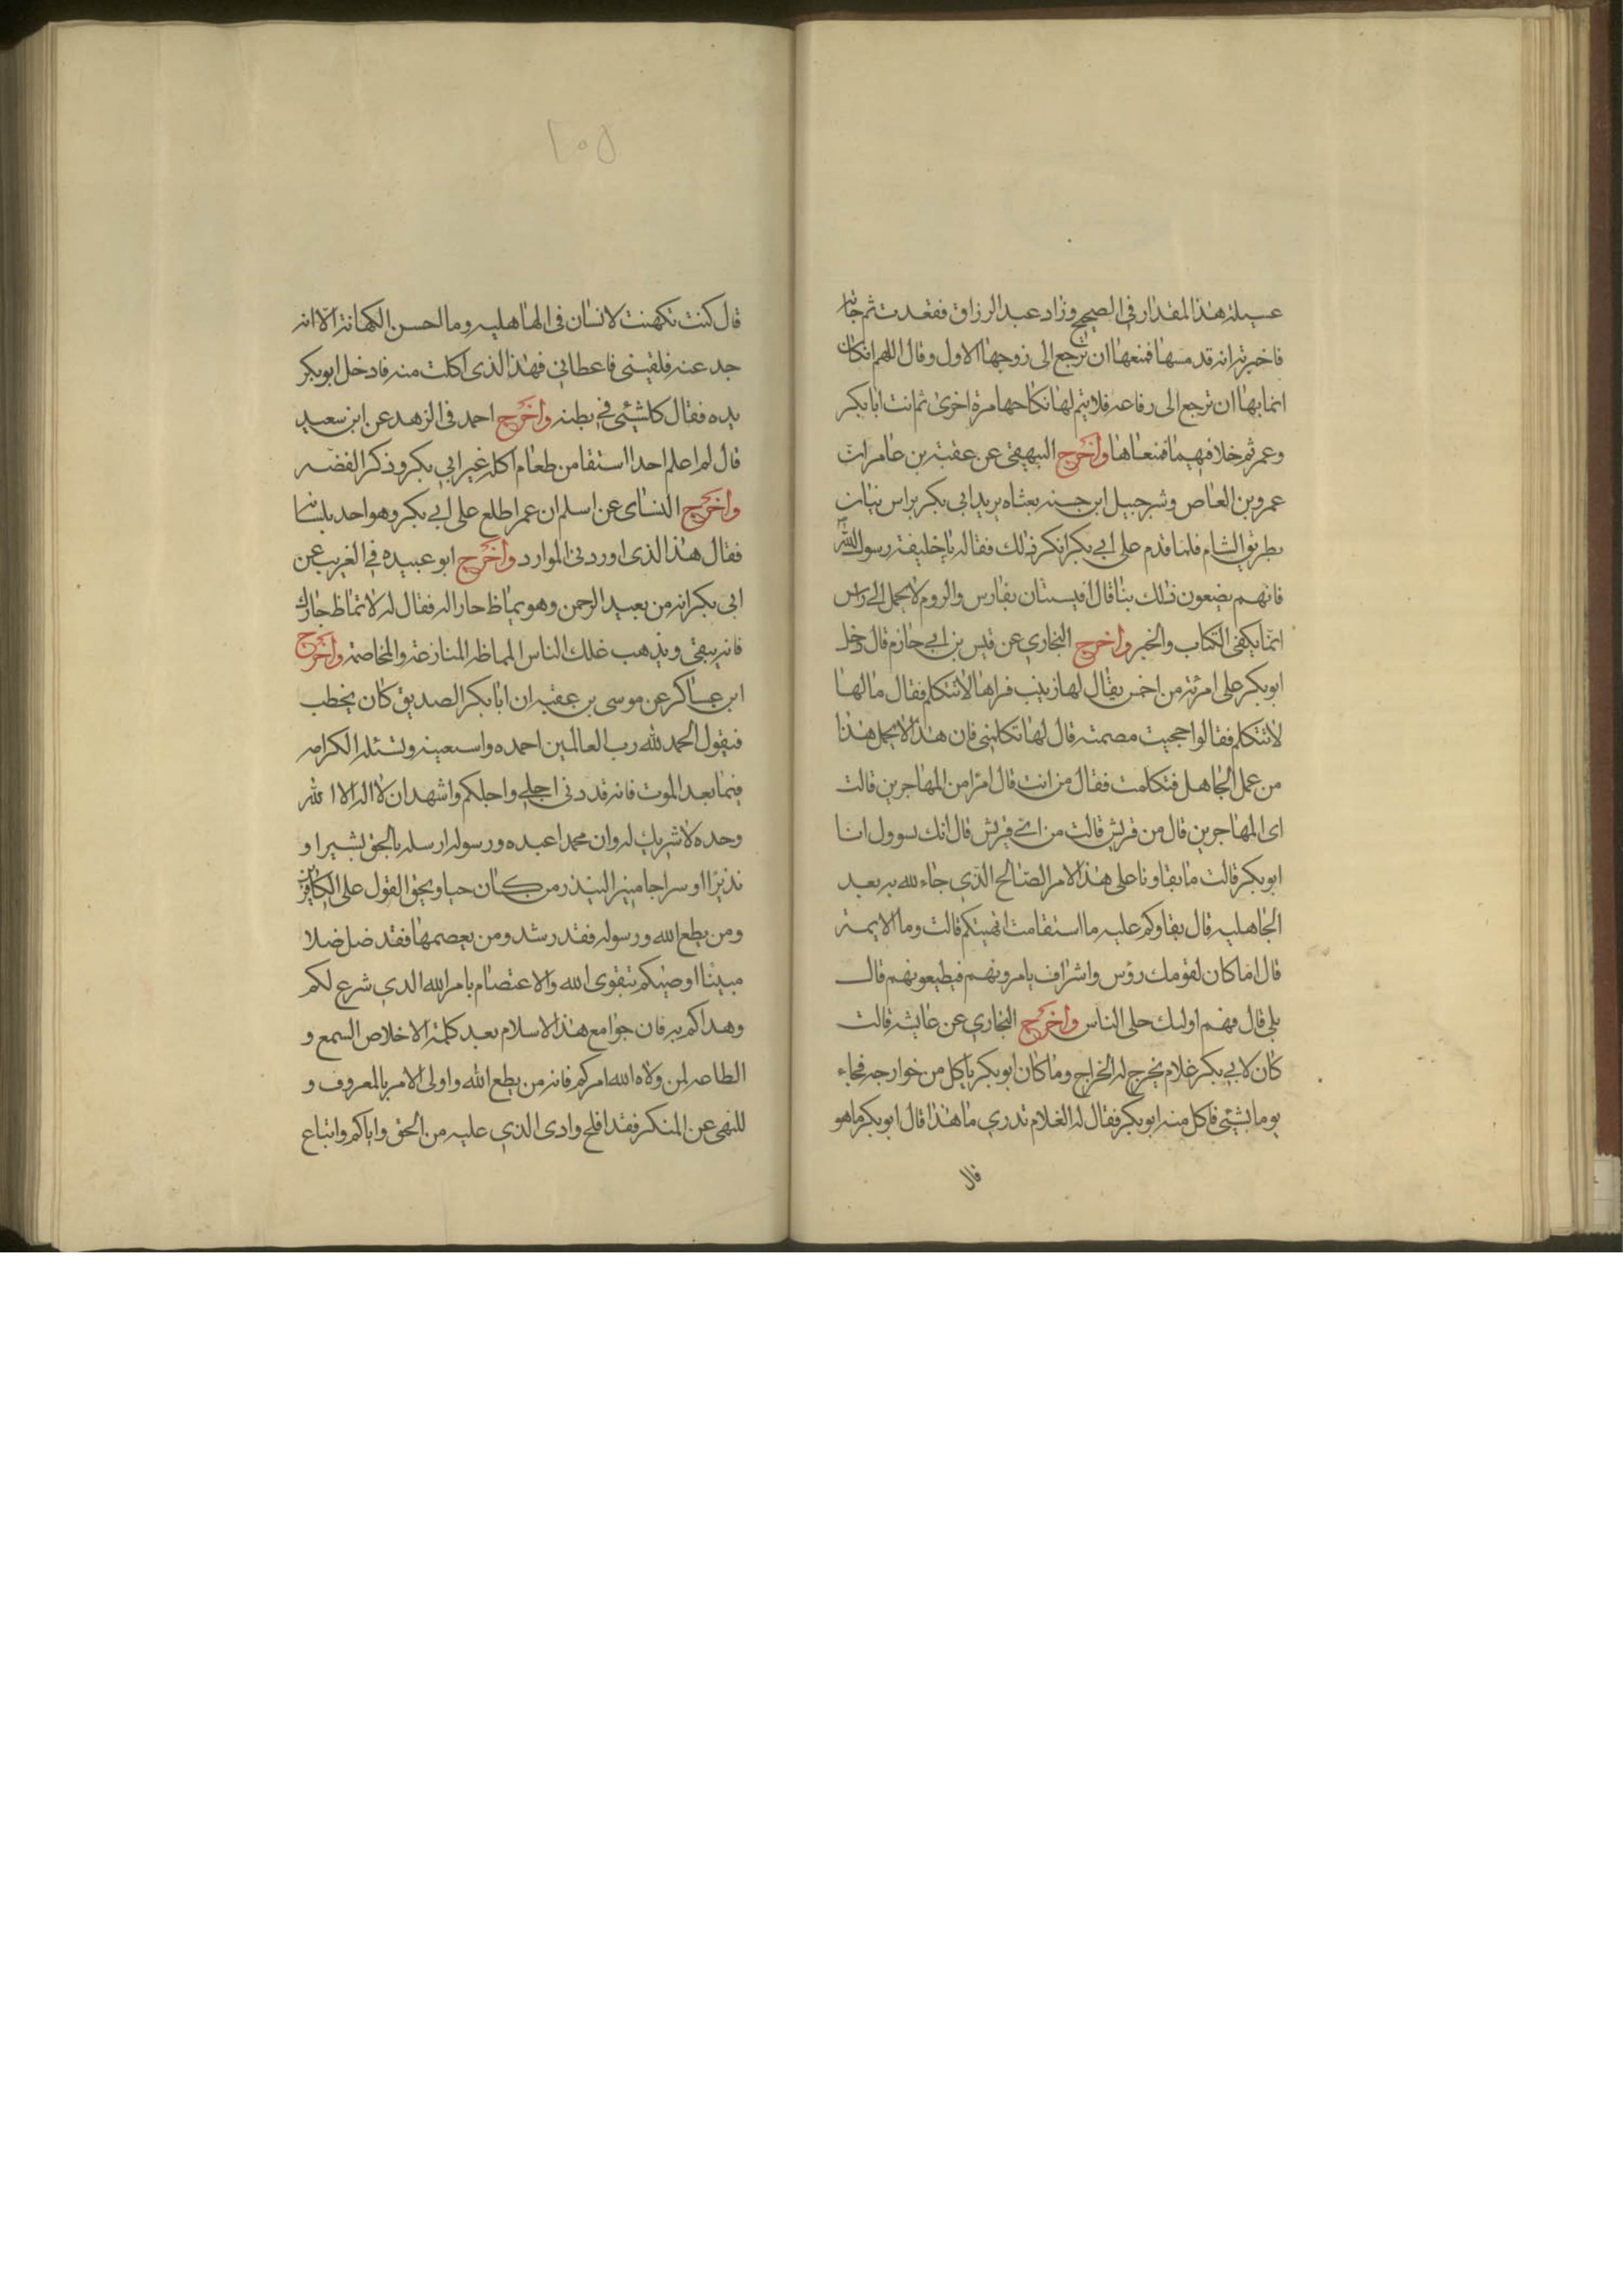 عسيلته هذا المقدار في الصحيح وزاد عبد الرزاق فقعدت ثم جاته
فاخبرته انه قد مسها فمنعها ان ترجع الى زوجها الاول وقال اللهم انكان
انما بها ان ترجع الى رفاعه فلا يتم لها نكاحها مرة اخرى ثم اتت ابا بكر
وعمر ثم خلافهما فمنعاها واخرج البيهقي عن عقبة بن عامر ان
عمرو بن العاص وشرجبيل ابن حسنه بعثاه بريد ابي بكر براس نيان
بطريق الشام فلما قدم على ابي بكر انكر ذلك فقاله يا خليفة رسول الله
فانهم يضعون ذلك بنا قال افيستان بفارس والروم لا يحمل الى راس
انما يكفى الكتاب والخبر واخرج البخاري عن قيس بن ابي حازم قال دخل
ابو بكر على امرئة من اخمس يقال لها زينب فراها لا تتكلم فقال ما لها
لا تتكلم فقالوا حجيت مصمته قال لها تكلمني فان هذا لا يحل هذا
من عمل الجاهل فتكلمت فقال من انت قال امرا من المهاجرين قالت
اى المهاجرين قال من قريش قالت من اى قريش قال انك سوول انا
ابو بكر قالت ما بقاونا على هذا الامر الصالح الذي جاء لله به بعد
الجاهليه قال بقاوكم عليه ما استقامت ائمتكم قالت وما الايمة
قال اما كان لقومك رؤس واشراف يامرونهم فيطيعونهم قال
بلى قال فهم اولئك على الناس واخرج البخاري عن عايشه قالت
كان لابي بكر غلام يخرج له الخراج وما كان ابو بكر ياكل من خوارجه فجاء
يوما بشئى فاكل منه ابو بكر فقال له الغلام تدري ما هذا قال ابو بكر ما هو
قال
٢٥١
قال كنت تكهنت لانسان فى الهاهليه وما احسن الكهانة الا انه
جد عنه فلقيني فاعطاني فهذا الذى اكلت منه فادخل ابو بكر
يده فقال كلشيئى في بطنه واخرج احمد فى الزهد عن ابن سعيد
قال لم اعلم احدا استقا من طعام اكله غير ابي بكر وذكر القصه
واخرج النساى عن اسلم ان عمر اطلع على ابي بكر وهو اخد بلسانه
فقال هذا الذى اوردنى الموارد واخرج ابو عبيده في الغريب عن
ابى بكر انه من بعبد الرحمن وهو يماظ جار اله فقال له لا تماظ جارك
فانه يبقى ويذهب غلك الناس المماظه المنازعة والمخاصمة واخرج
ابن عساكر عن موسى بن عقبه ان ابا بكر الصديق كان يخطب
فيقول الحمد لله رب العالمين احمده واستعينه ونسئله الكرامه
فيما بعد الموت فانه قد دنى اجلي واجلكم واشهد ان لا اله الا الله
وحده لا شريك له وان محمدا عبده ورسوله ارسله بالحق بشيرا و
نذيرا و سراجا منيرا لينذر من كان حيا ويحق القول على الكافرين
ومن يطع الله ورسوله فقد رشد ومن يعصمها فقد ضل ضلا
مبينا اوصيكم بتقوى الله والاعتصام بامر الله الدي شرع لكم
وهداكم به فان جوامع هذا الاسلام بعد كلمة الاخلاص السمع و
الطاعه لمن ولاه الله امركم فانه من يطع الله واولى الامر بالمعروف و
للنهى عن المنكر فقد افلح وادى الذي عليه من الحق واياكم واتباع